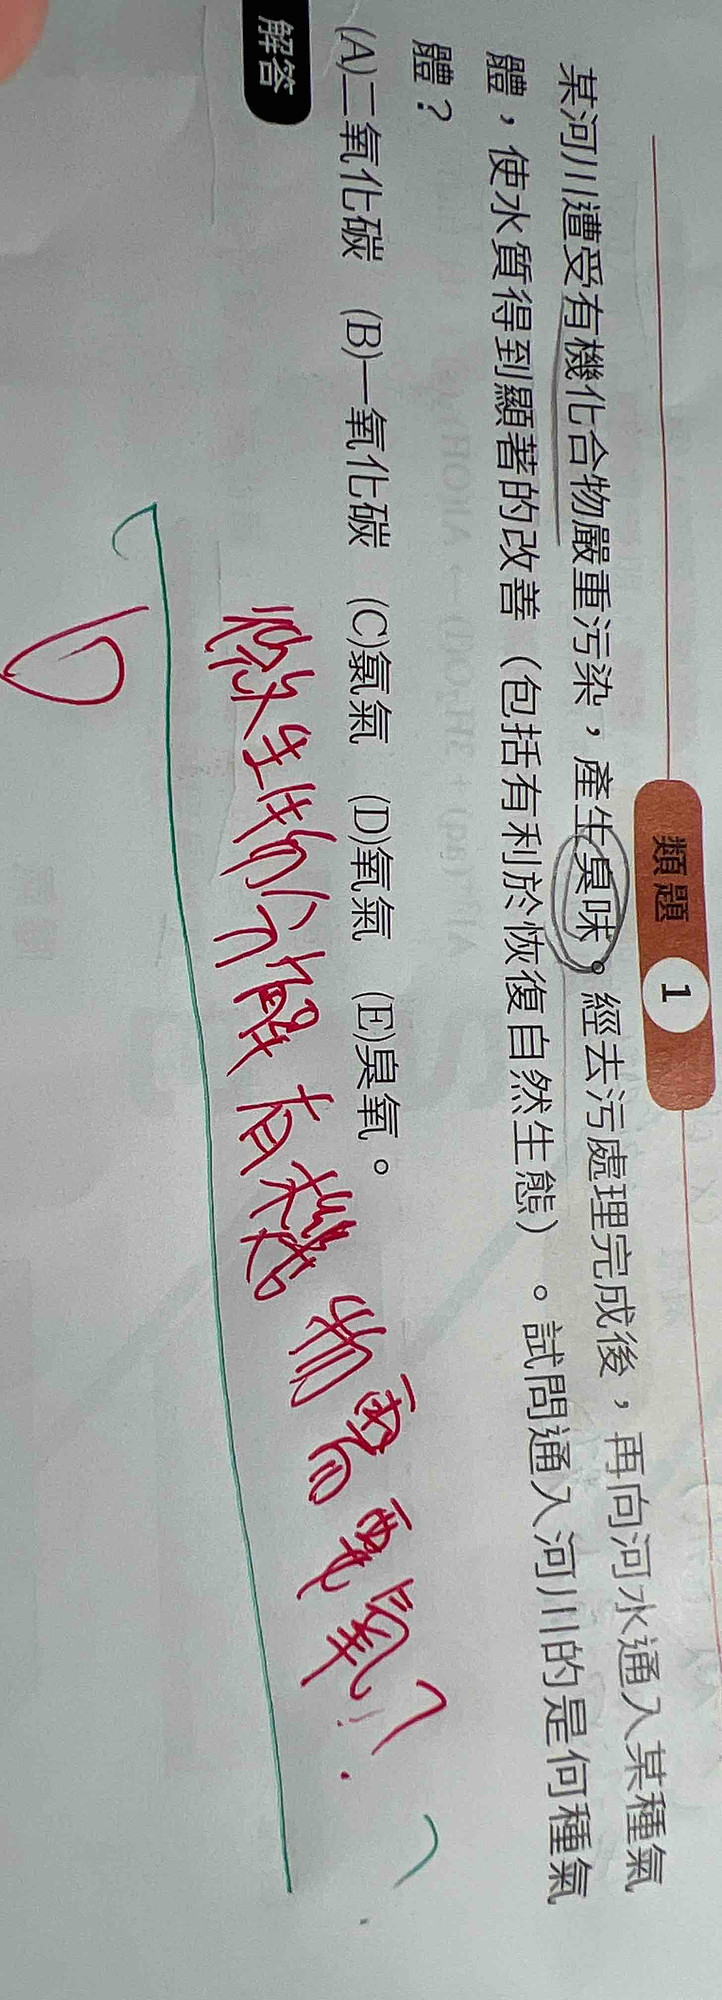 類題 1
某河川遭受有機化合物嚴重污染,產生臭味。經去污處理完成後,再向河水通入某種氣
體,使水質得到顯著的改善(包括有利於恢復自然生態)。試問通入河川的是何種氣
體?
(A)二氧化碳 (B)一氧化碳 (C)氯氣 (D)氧氣 (E)臭氧。
解答
微生物分解有機物需要氧?
D